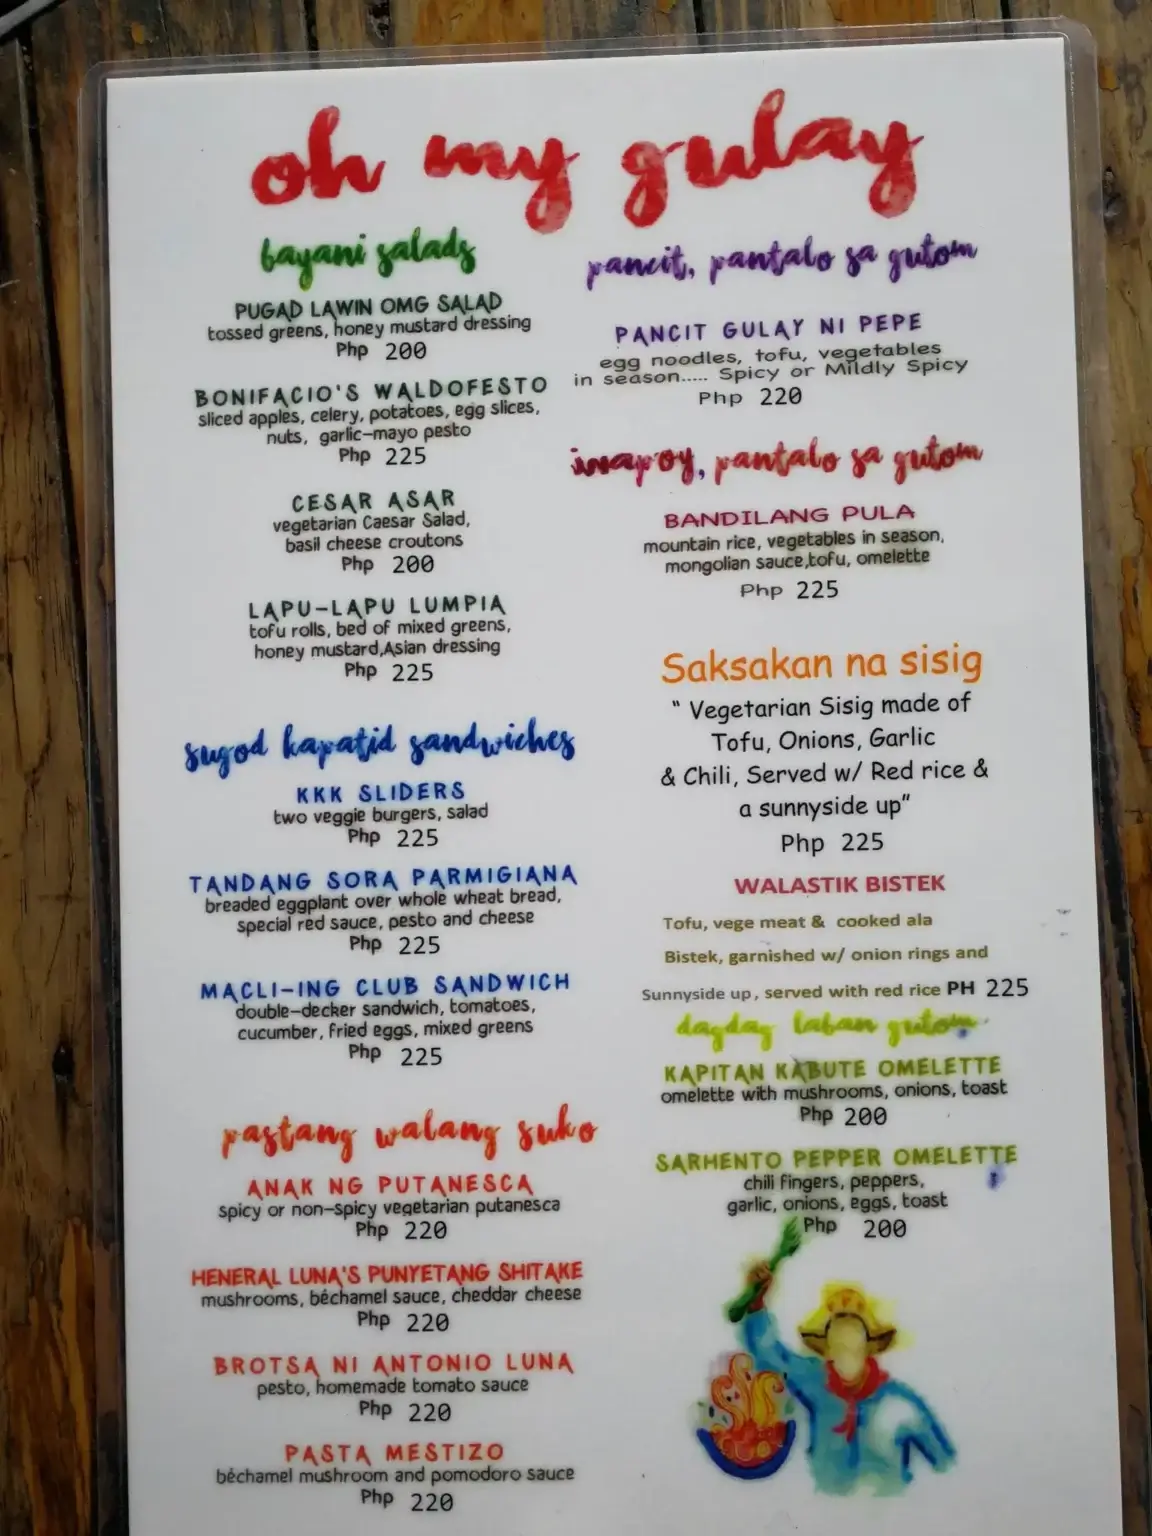 oh my gulay
bayani salads
PUGAD LAWIN OMG SALAD
tossed greens, honey mustard dressing
Php 200
BONIFACIO'S WALDOFESTO
sliced apples, celery, potatoes, egg slices,
nuts, garlic-mayo pesto
Php 225
CESAR ASAR
vegetarian Caesar Salad,
basil cheese croutons
Php 200
LAPU-LAPU LUMPIA
tofu rolls, bed of mixed greens,
honey mustard,Asian dressing
Php 225
sugod kapatid sandwiches
KKK SLIDERS
two veggie burgers, salad
Php 225
TANDANG SORA PARMIGIANA
breaded eggplant over whole wheat bread,
special red sauce, pesto and cheese
Php 225
MACLI-ING CLUB SANDWICH
double-decker sandwich, tomatoes,
cucumber, fried eggs, mixed greens
Php 225
pastang walang suko
ANAK NG PUTANESCA
spicy or non-spicy vegetarian putanesca
Php 220
HENERAL LUNA'S PUNYETANG SHITAKE
mushrooms, béchamel sauce, cheddar cheese
Php 220
BROTSA NI ANTONIO LUNA
pesto, homemade tomato sauce
Php 220
PASTA MESTIZO
béchamel mushroom and pomodoro sauce
Php 220
pancit, pantalo sa gutom
PANCIT GULAY NI PEPE
egg noodles, tofu, vegetables
in season..... Spicy or Mildly Spicy
Php 220
inapoy, pantalo sa gutom
BANDILANG PULA
mountain rice, vegetables in season,
mongolian sauce,tofu, omelette
Php 225
Saksakan na sisig
“ Vegetarian Sisig made of
Tofu, Onions, Garlic
& Chili, Served w/ Red rice &
a sunnyside up”
Php 225
WALASTIK BISTEK
Tofu, vege meat & cooked ala
Bistek, garnished w/ onion rings and
Sunnyside up, served with red rice PH 225
dagdag laban gutom
KAPITAN KABUTE OMELETTE
omelette with mushrooms, onions, toast
Php 200
SARHENTO PEPPER OMELETTE
chili fingers, peppers,
garlic, onions, eggs, toast
Php 200